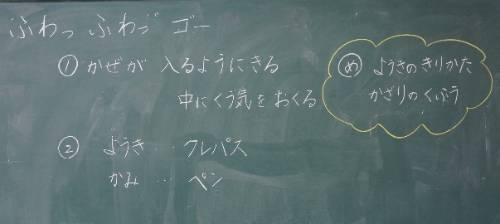 ふわっ ふわっ ゴー
① かぜが 入るようにきる
中にくう気をおくる
め ようきのきりかた
かざりのくふう
② ようき … クレパス
かみ … ペン